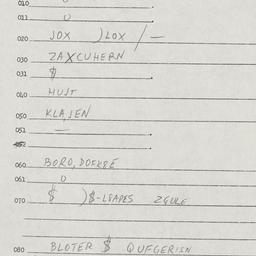 010
011 0
020 JOX )LOX / —
030 ZAXCUHERN
031 $
040 HUJT
050 KLA,SEN
051 —
052
060 BORO,
061 0
070 $ )$-LSAPES ZGULE
080 BLOTER $ QUFGERISN